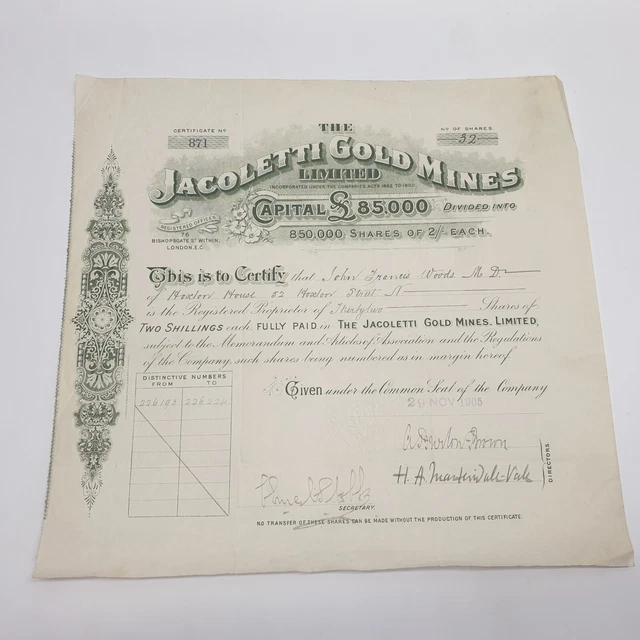 CERTIFICATE Nº
871
THE
Nº OF SHARES
32
JACOLETTI GOLD MINES
LIMITED
INCORPORATED UNDER THE COMPANIES ACTS 1862 TO 1900
CAPITAL £85,000 DIVIDED INTO
850,000 SHARES OF 2/- EACH.
REGISTERED OFFICES
76
BISHOPSGATE ST WITHIN,
LONDON, E.C.
This is to Certify that John Francis Woods M.D.
of Hoxton House 52 Hoxton Street N
is the Registered Proprietor of Thirtytwo Shares of
TWO SHILLINGS each, FULLY PAID in THE JACOLETTI GOLD MINES, LIMITED,
subject to the Memorandum and Articles of Association and the Regulations
of the Company, such shares being numbered as in margin hereof
DISTINCTIVE NUMBERS
FROM TO
226193 226224
Given under the Common Seal of the Company
29 NOV 1905
H. A. Martindale-Vale
DIRECTORS.
SECRETARY.
NO TRANSFER OF THESE SHARES CAN BE MADE WITHOUT THE PRODUCTION OF THIS CERTIFICATE.